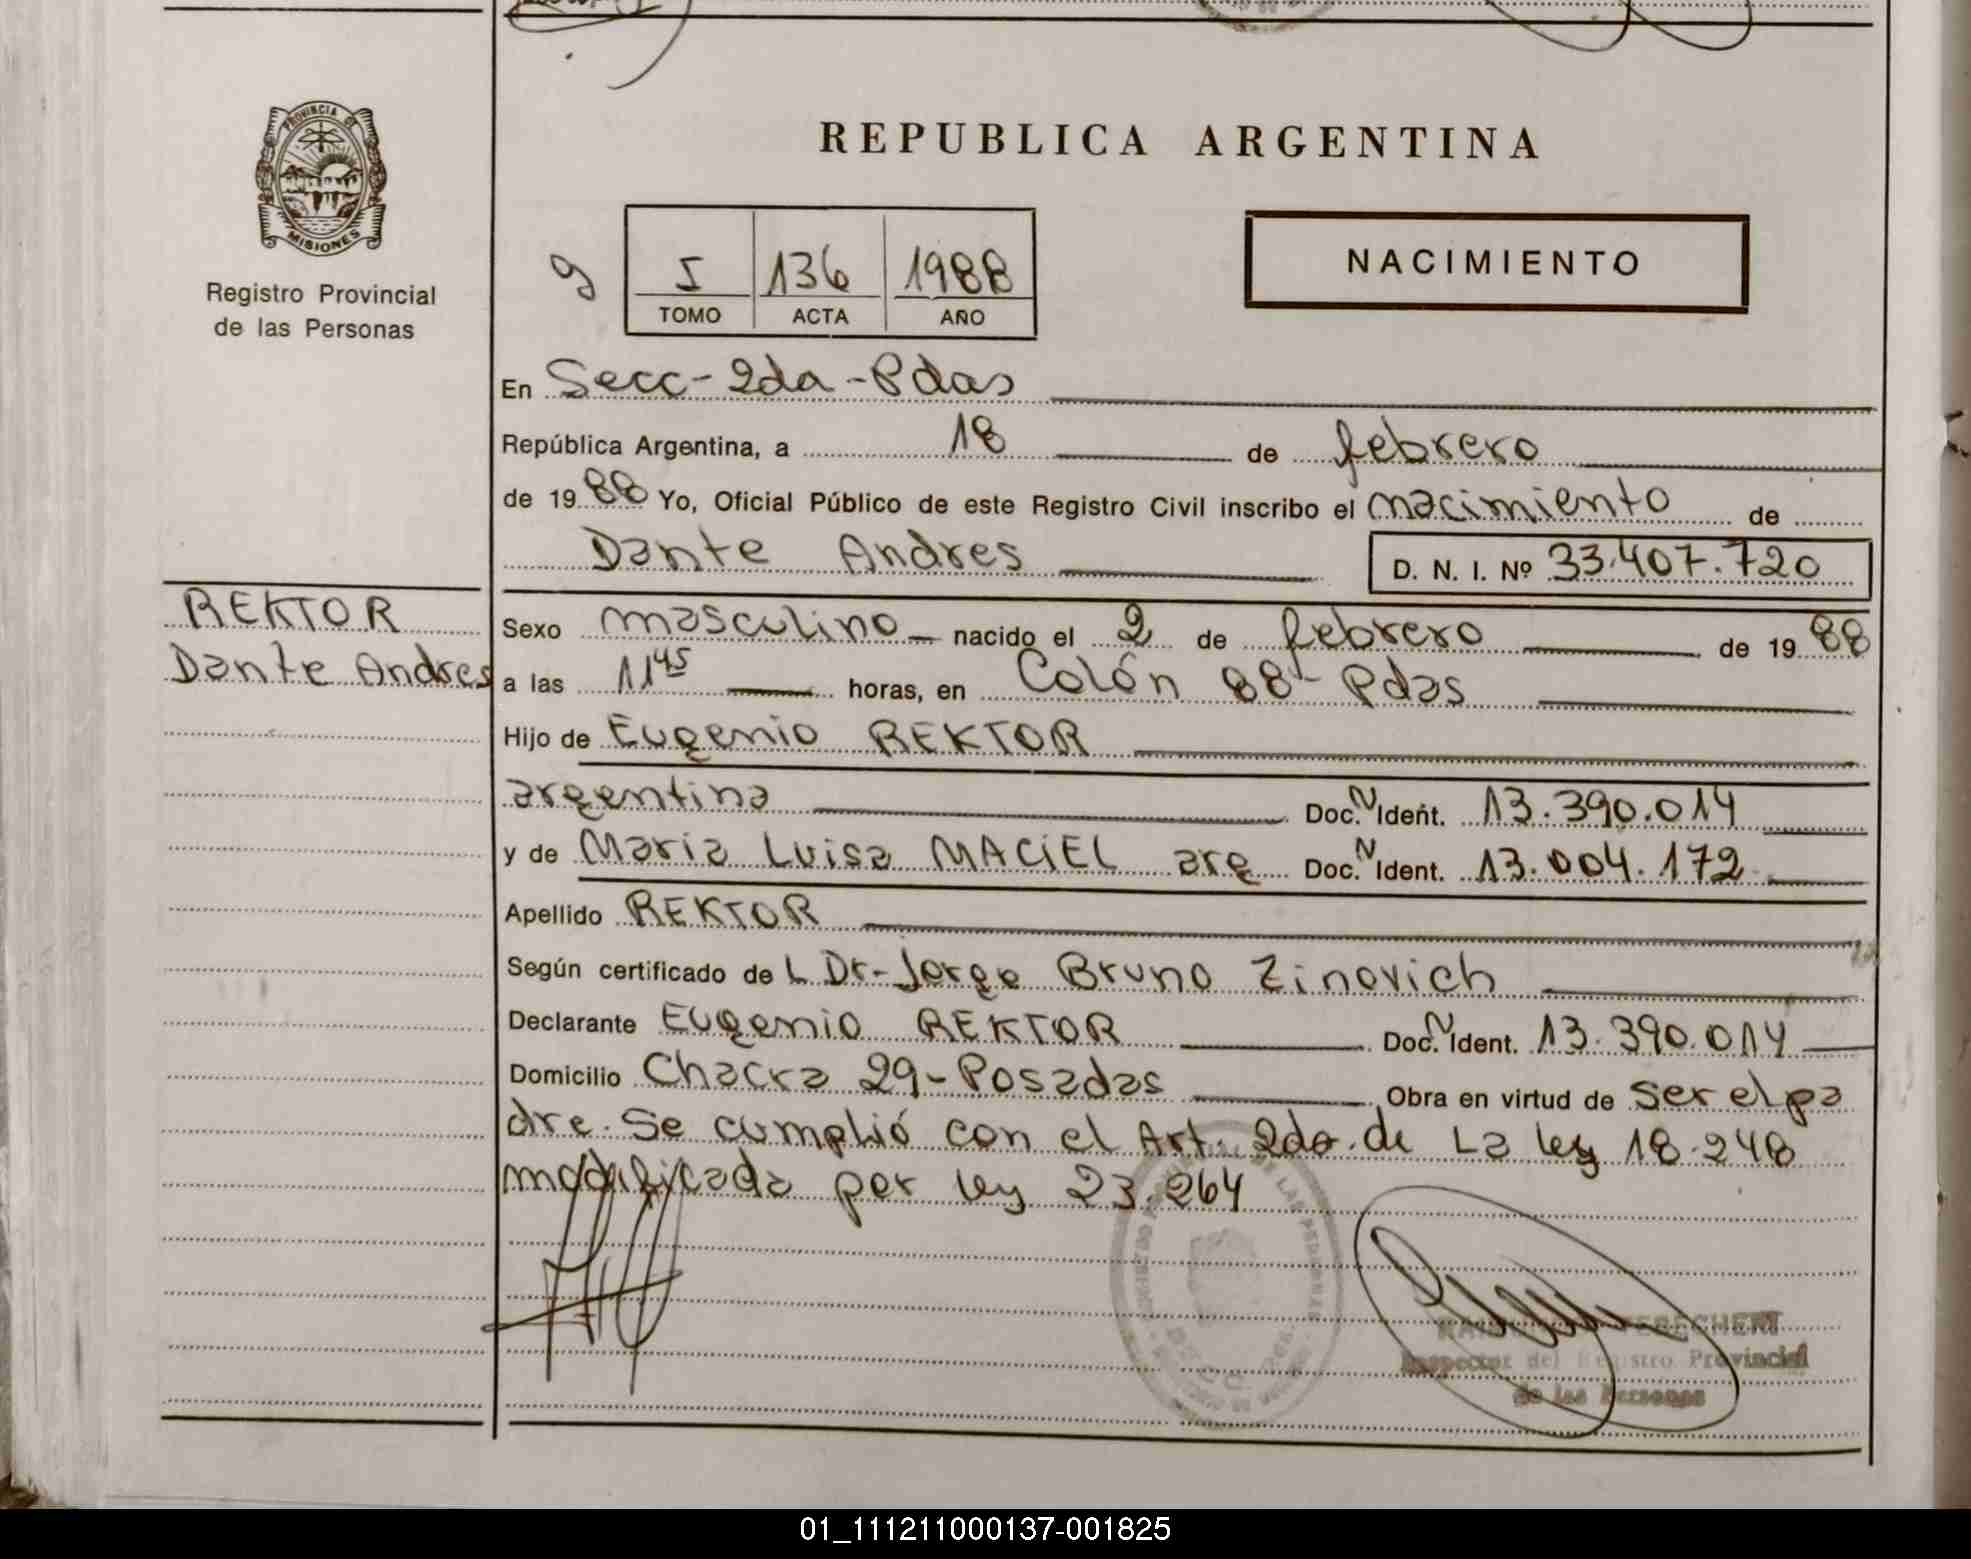 PROVINCIA DE
MISIONES
Registro Provincial
de las Personas
REPUBLICA ARGENTINA
NACIMIENTO
9
I 136 1988
TOMO ACTA AÑO
En Secc-2da-Pdas
República Argentina, a 18 de febrero
de 1988 Yo, Oficial Público de este Registro Civil inscribo el nacimiento de
Dante Andres D. N. I. Nº 33.407.720
REKTOR
Dante Andres
Sexo masculino nacido el 2 de febrero de 1988
a las 11 45 horas, en Colón 88- Pdas
Hijo de Eugenio REKTOR
argentina Doc. N Ident. 13.390.014
y de Maria Luisa MACIEL arg Doc. N Ident. 13.004.172
Apellido REKTOR
Según certificado de L Dr-Jorge Bruno Zinovich
Declarante Eugenio REKTOR Doc. N Ident. 13.390.014
Domicilio Chacra 29-Posadas Obra en virtud de ser el pa
dre. Se cumplió con el Art. 2do. de La ley 18.248
modificada por ley 23.264
Inspector del Registro Provincial
de las Personas
01_111211000137-001825